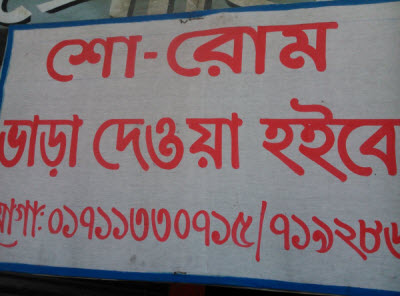 শো-রোম
ভাড়া দেওয়া হইবে
যোগাঃ ০১৭১১৩৩০৭১৫/৭১৯২৮৬